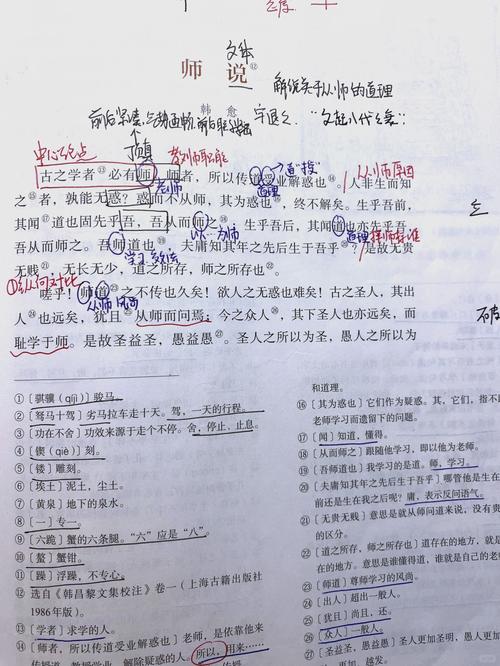 文体
师 说⑫
解说关于从师的道理
韩 愈
字退之,“文起八代之衰”
中心论点
顶真
教师职能
从师原因
古之学者⑬必有师。师者,所以传道受业解惑也⑭。人非生而知
老师
道理
之⑮者,孰能无惑?惑而不从师,其为惑也⑯,终不解矣。生乎吾前,
其闻⑰道也固先乎吾,吾从而师之⑱;生乎吾后,其闻道也亦先乎吾,
以…为师
道理
择师标准
吾从而师之。吾师道也⑲,夫庸知其年之先后生于吾乎⑳?是故无贵
学习
无贱㉑,无长无少,道之所存,师之所存也㉒。
嗟乎!师道㉓之不传也久矣!欲人之无惑也难矣!古之圣人,其出
从师风尚
人㉔也远矣,犹且㉕从师而问焉;今之众人㉖,其下圣人也亦远矣,而
耻学于师。是故圣益圣,愚益愚㉗。圣人之所以为圣,愚人之所以为
①〔骐骥(qíjì)〕骏马。
②〔驽马十驾〕劣马拉车走十天。驾,一天的行程。
③〔功在不舍〕功效来源于走个不停。舍,停止,止息。
④〔锲(qiè)〕刻。
⑤〔镂〕雕刻。
⑥〔埃土〕泥土,尘土。
⑦〔黄泉〕地下的泉水。
⑧〔一〕专一。
⑨〔六跪〕蟹的六条腿。“六”应是“八”。
⑩〔螯〕蟹钳。
⑪〔躁〕浮躁,不专心。
⑫选自《韩昌黎文集校注》卷一(上海古籍出版社
1986年版)。
⑬〔学者〕求学的人。
⑭〔师者,所以传道受业解惑也〕老师,是依靠他来
传授道、教授学业、解除疑惑的人。所以,用来……
和道理。
⑯〔其为惑也〕它们作为疑惑。其,它们,指不跟
老师学习而遗留下的问题。
⑰〔闻〕知道,懂得。
⑱〔从而师之〕跟随他学习,即以他为老师。
⑲〔吾师道也〕我学习的是道。师,学习。
⑳〔夫庸知其年之先后生于吾乎〕哪管他是生在
前还是生在我之后呢?庸,表示反问语气。
㉑〔无贵无贱〕意思是就从师问道来说,没有贵
的区分。
㉒〔道之所存,师之所存也〕道存在的地方,就是
的地方。意思是谁懂得道,谁就是自己的老
㉓〔师道〕尊师学习的风尚。
㉔〔出人〕超出一般人。
㉕〔犹且〕尚且,还。
㉖〔众人〕一般人。
㉗〔圣益圣,愚益愚〕圣人更加圣明,愚人更加